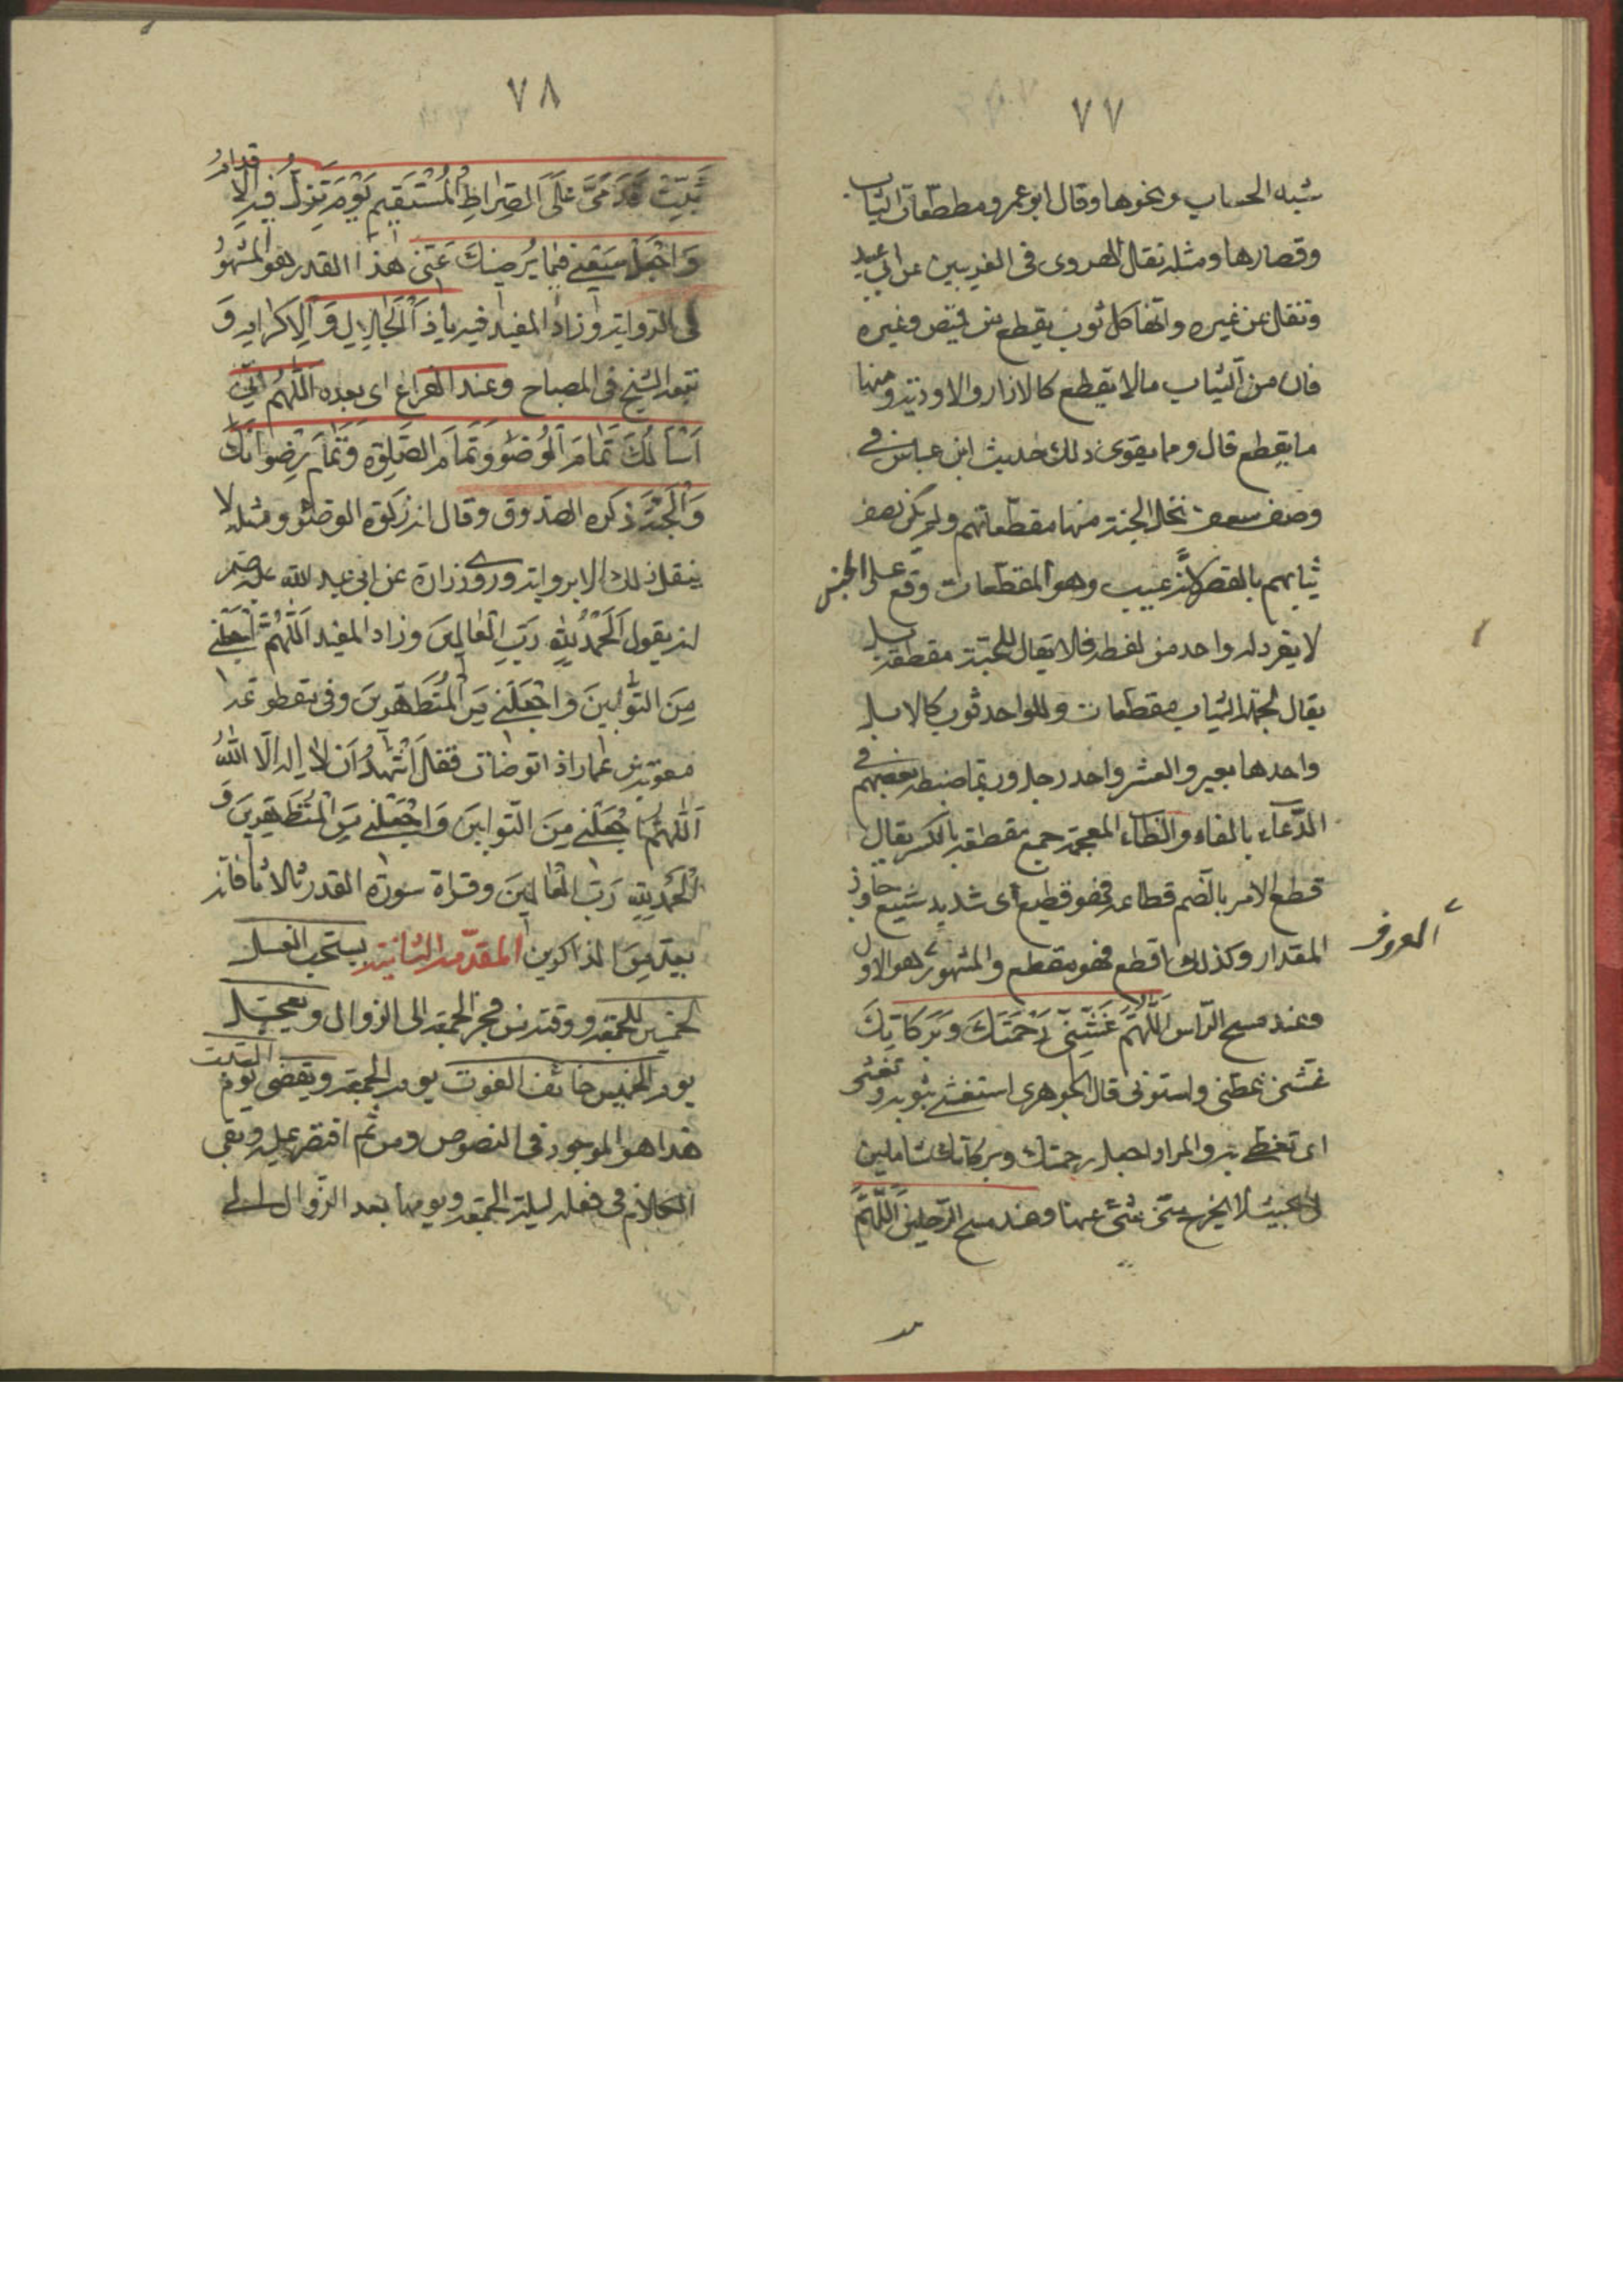 ٧٧
شبه الحساب ونحوها وقال ابو عمرو مطعطعات الثياب
وقصارها ومثله نقال الهروى فى الغريبين عن ابى عبيد
ونقل عن غيره وانها كل ثوب يقطع من قميص وغيره
فان من الثياب مالا يقطع كالازار والاردية ومنها
ما يقطع قال ومما يقوى ذلك حديث ابن عباس فى
وصف سعف نخل الجنة منها مقطعاتهم ولم يكن يصف
ثيابهم بالقصر لانه عيب وهو المقطعات وقع على الجنس
لا يفرد له واحد من لفظه فلا يقال للجبة مقطعة بل
يقال لجملة الثياب مقطعات وللواحد ثوب كالابل
واحدها بعير والعشر واحد رجل وربما ضبطه بعضهم فى
الدعاء بالفاء والظاء المعجمة جمع مقطعة بالكسر يقال
قطع الامر بالضم قطاعة فهو قطيع اى شديد شنيع جاوز
المقدار وكذلك اقطع فهو مقطع والمشهور هو الاول
المعروف
وعند مسح الراس اَللّهُمَّ غَشِّنِى رَحْمَتَكَ وَبَرَكَاتِكَ
غشنى غطنى واسترنى قال الجوهرى استغشى بثوبه وتغشى
اى تغطى به والمراد اجعل رحمتك وبركاتك شاملين
لى بحيث لا يخرج منى شئ عنها وعند مسح الرجلين اَللّهُمَّ
٧٨
ثَبِّتْ قَدَمَىَّ عَلَى الصِّرَاطِ الْمُسْتَقِيمِ يَوْمَ تَزِلُّ فِيهِ الْاَقْدَامُ
وَاجْعَلْ سَعْيِى فِيمَا يُرْضِيكَ عَنِّى هذا القدر هو المشهور
فى الرواية وزاد المفيد فيه يا ذَا الْجَلَالِ وَالْاِكْرَامِ وَ
تبعه الشيخ فى المصباح وعند الفراغ اى بعده اَللّهُمَّ اِنِّى
اَسْاَلُكَ تَمَامَ الْوُضُوءِ وَتَمَامَ الصَّلٰوةِ وَتَمَامَ رِضْوَانِكَ
وَالْجَنَّةَ ذكره الصدوق وقال انه زكوة الوضوء ومثله لا
ينقل ذلك الا برواية وروى زرارة عن ابى عبد الله عليه
انه يقول اَلْحَمْدُ لِلّٰهِ رَبِّ الْعَالَمِينَ وزاد المفيد اَللّٰهُمَّ اجْعَلْنِى
مِنَ التَّوَّابِينَ وَاجْعَلْنِى مِنَ الْمُتَطَهِّرِينَ وفى
معوية بن عمار اذا توضات فقل اَشْهَدُ اَنْ لَا اِلٰهَ اِلَّا اللّٰهُ
اَللّٰهُمَّ اجْعَلْنِى مِنَ التَّوَّابِينَ وَاجْعَلْنِى مِنَ الْمُتَطَهِّرِينَ وَ
الْحَمْدُ لِلّٰهِ رَبِّ الْعَالَمِينَ وقراءة سورة القدر ثلاثا فانه
المقدمة الثانية يستحب الغسل
للجمعة ووقته من فجر الجمعة الى الزوال وتعجيله
يوم الخميس خائف الفوت يوم الجمعة ويقضى يوم السبت
هذا هو الموجود فى النصوص ومن ثم اقتصر عليه وبقى
الكلام فى فعله ليلة الجمعة ويومها بعد الزوال الى